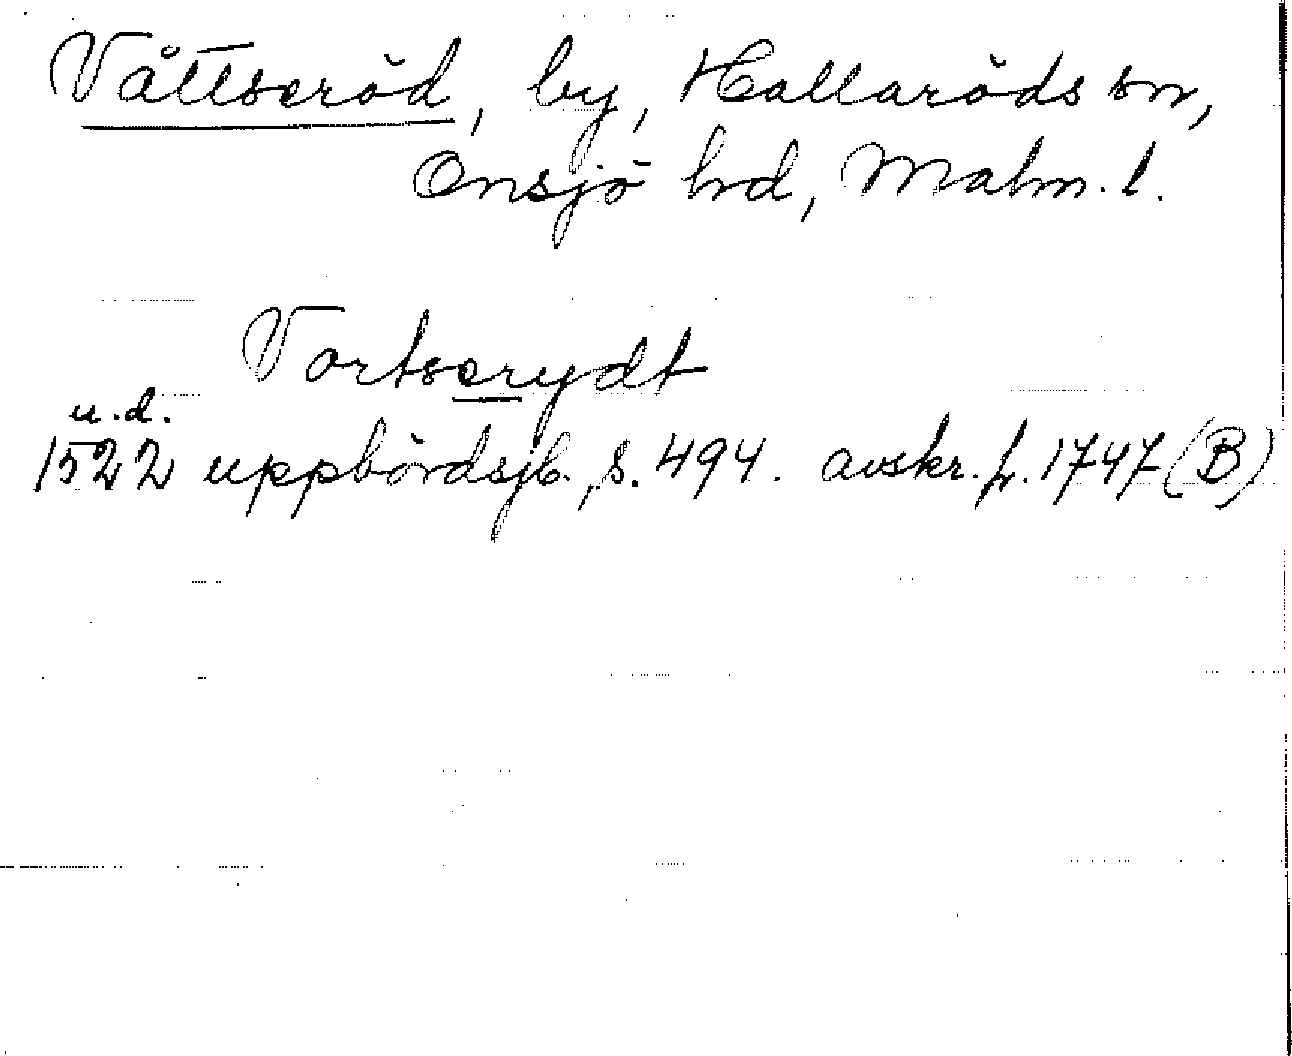 Våttseröd, by, Hallaröds sn,
Onsjö hd, Malm. l.
Vortserydt
u.d.
1522 uppbördsjb., s. 494. avskr. fr. 1747 (B)